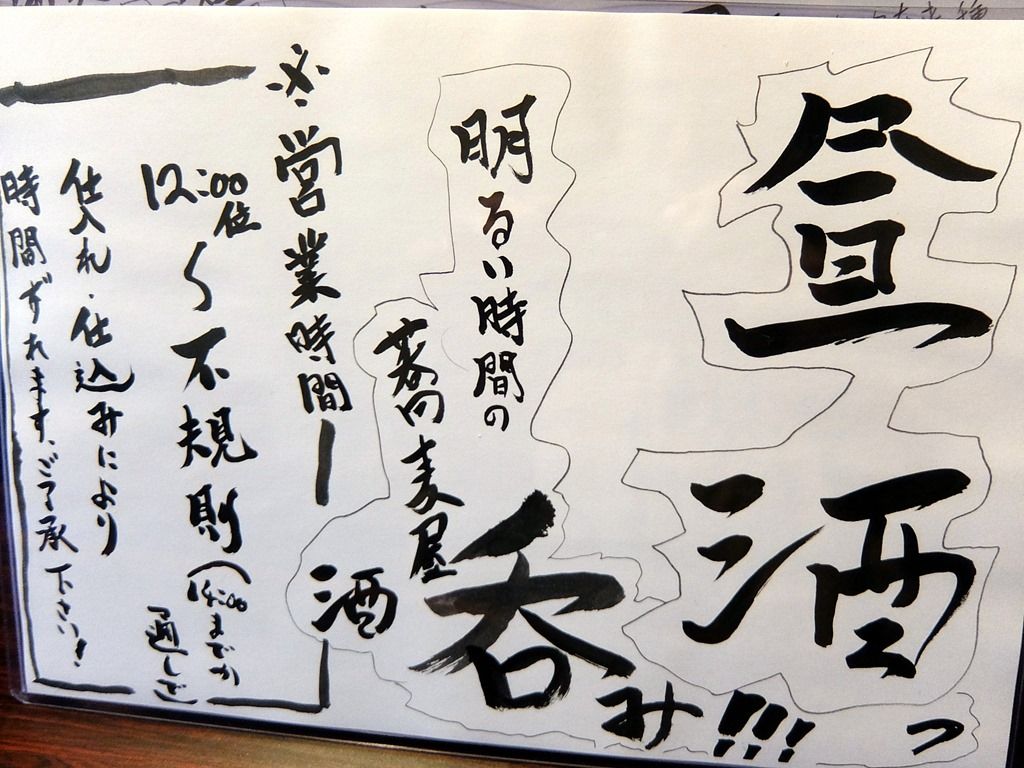 昼酒っ
明るい時間の
蕎麦屋酒
呑み!!!
※営業時間ー
12:00位〜不規則(14:00までか
通しで
仕入れ・仕込みにより
時間ずれます、ご了承下さい!